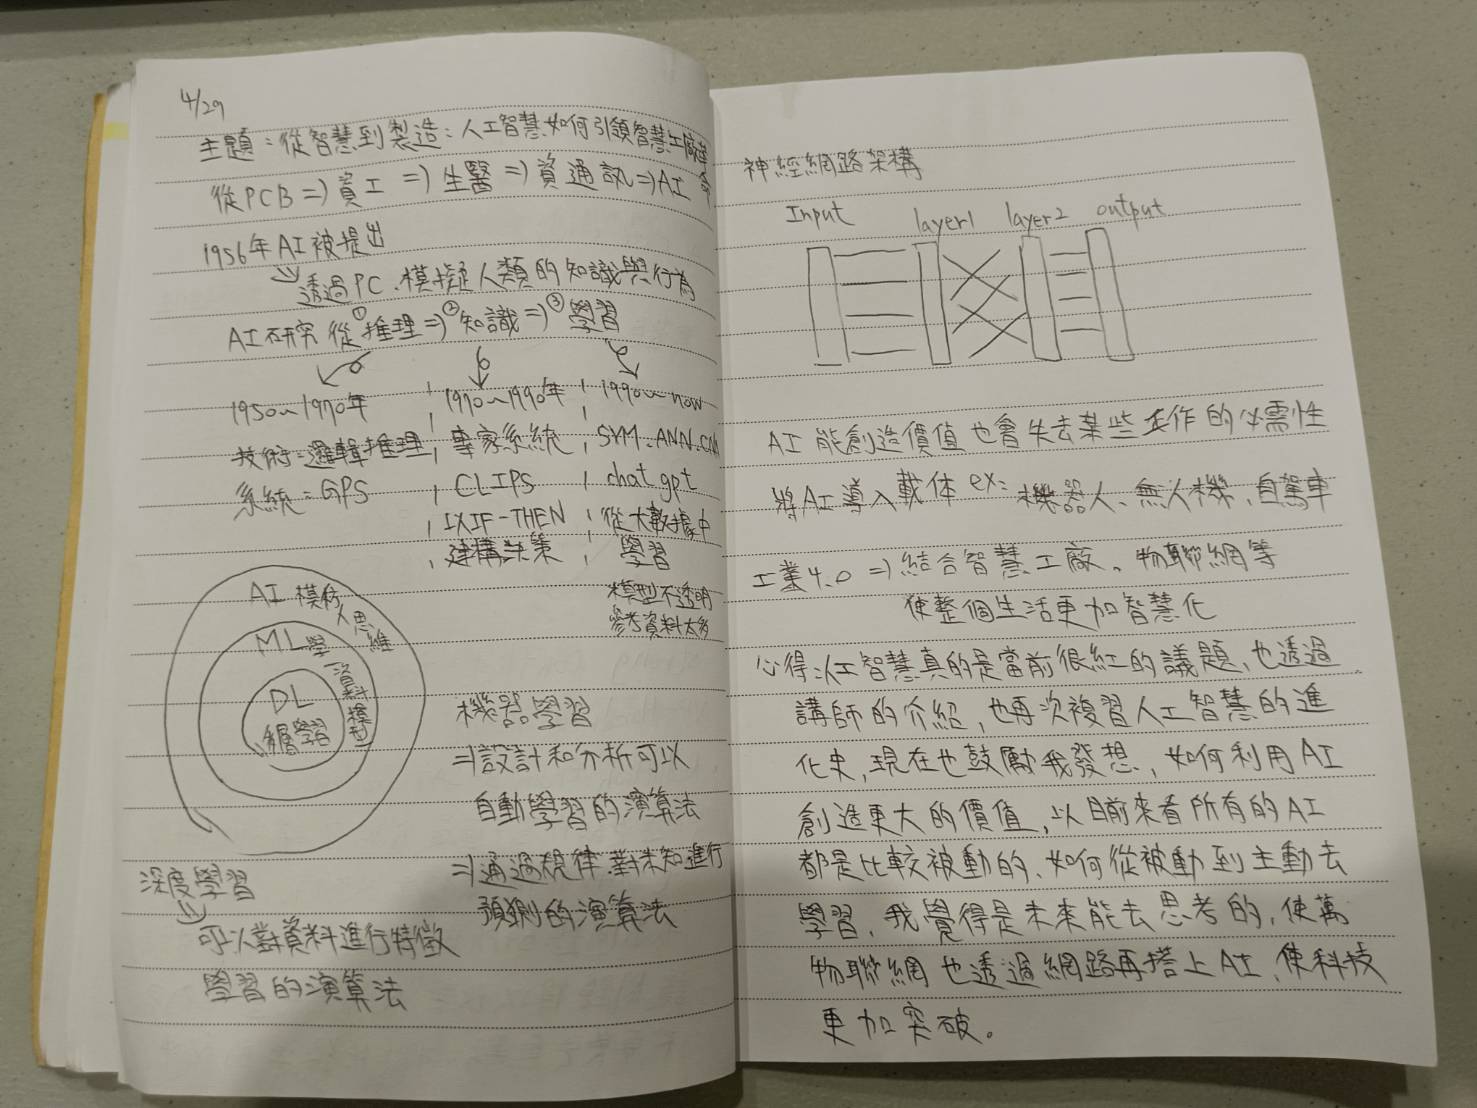 4/29
主題:從智慧到製造:人工智慧如何引領智慧工廠革
命
從PCB⇒資工⇒生醫⇒資通訊⇒AI
1956年AI被提出
透過PC、模擬人類的知識與行為
AI研究從①推理⇒②知識⇒③學習
1950~1970年
技術:邏輯推理
系統:GPS
1970~1990年
專家系統
CLIPS
以IF-THEN
建構決策
1990~now
SYM、ANN、CNN
chat gpt
從大數據中
學習
模型不透明
參考資料太多
AI 模仿人思維
ML 學資料模型
DL
多層學習
機器學習
⇒設計和分析可以
自動學習的演算法
⇒通過規律、對未知進行
預測的演算法
深度學習
可以對資料進行特徵
學習的演算法
神經網路架構
Input layer1 layer2 output
AI 能創造價值也會失去某些工作的必需性
將AI導入載体 ex: 機器人、無人機、自駕車
工業4.0⇒結合智慧工廠、物聯網等
使整個生活更加智慧化
心得:人工智慧真的是當前很紅的議題,也透過
講師的介紹,也再次複習人工智慧的進
化史,現在也鼓勵我發想,如何利用AI
創造更大的價值,以目前來看所有的AI
都是比較被動的、如何從被動到主動去
學習,我覺得是未來能去思考的,使萬
物聯網也透過網路再搭上AI、使科技
更加突破。